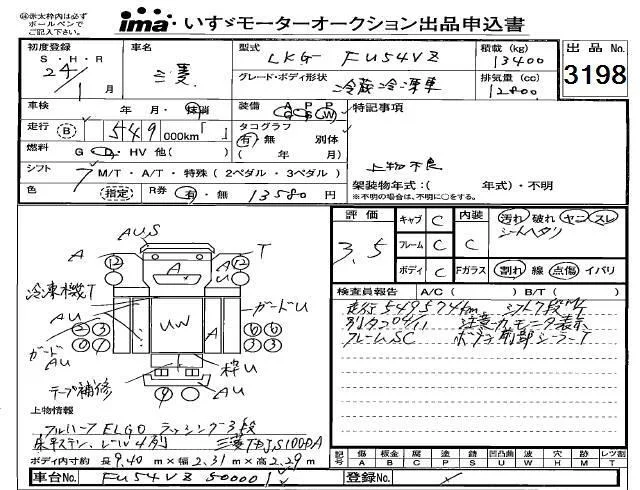 ㊟赤太枠内は必ず
ボールペンで
ご記入下さい。
ima いすゞモーターオークション出品申込書
初度登録 車名 型式 LKG - FU54VZ 積載 (kg) 13400 出品 No.
S・H・R 24/1月 三菱 グレード・ボディ形状 冷蔵冷凍車 排気量 (cc) 12800 3198
車検 年・月・抹消 装備 A P P C B W 特記事項
走行 B 549 000km「 」 タコグラフ 有 無 別体
燃料 G・D・HV 他( ) ( 年/ 月) 上物不良
シフト 7 M/T・A/T・特殊 ( 2ペダル・3ペダル ) 架装物年式:( 年式)・不明
色 指定 R券 有・無 13580 円 ※不明の場合は、不明に○をする。
評価 3.5
キャブ C 内装 C 汚れ 破れ ヤニ スレ
シートヘタリ
フレーム C
ボディ C Fガラス 割れ 線 点傷 イバリ
検査員報告 A/C ( ) B/T ( )
走行549574km シフト7段M/T
別タコ04/11 注意カモニタ表示
フレームSC ボデコ前部シーラーT
AU,S
A T
12 A 12
U
冷凍機T
AU UW A ガードU
ガード
AU
枠U
テープ補修 AU
上物情報
フルハーフ ELGO ラッシング3段
床平ステン、レール4列 三菱TFJS100DA
ボディ内寸約 長9.40 m×幅2.31 m×高2.29 m
記号 傷 A 板金 B 腐 C 塗 P 錆 S 凹凸曲 U 波 W 穴 H 跡 M レツ割 T
車台No. FU54VZ 50000 登録No.